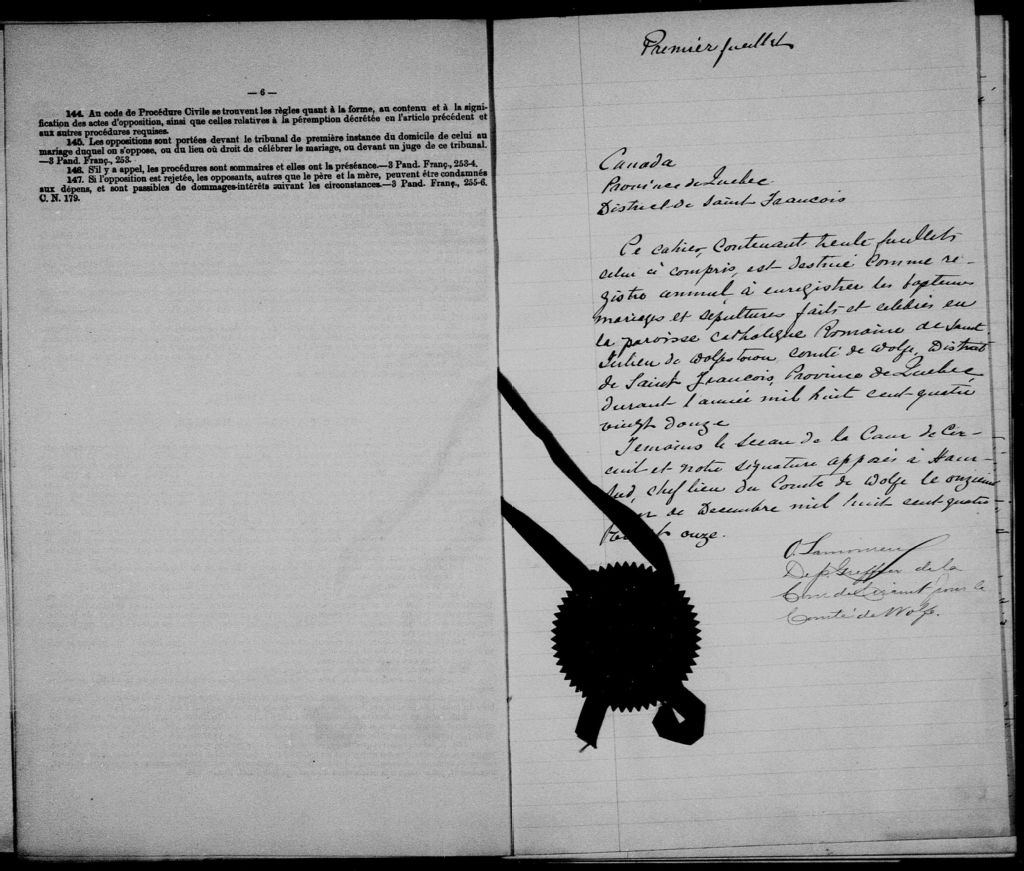 — 6 —
144. Au code de Procédure Civile se trouvent les règles quant à la forme, au contenu et à la signi-
fication des actes d'opposition, ainsi que celles relatives à la péremption décrétée en l'article précédent et
aux autres procédures requises.
145. Les oppositions sont portées devant le tribunal de première instance du domicile de celui au
mariage duquel on s'oppose, ou du lieu où droit de célébrer le mariage, ou devant un juge de ce tribunal.
—3 Pand. Franç., 253.
146. S'il y a appel, les procédures sont sommaires et elles ont la préséance.—3 Pand. Franç., 253-4.
147. Si l'opposition est rejetée, les opposants, autres que le père et la mère, peuvent être condamnés
aux dépens, et sont passibles de dommages-intérêts suivant les circonstances.—3 Pand. Franç., 255-6.
C. N. 179.
Premier feuillet
Canada
Province de Quebec
District de Saint Francois
Ce cahier, Contenant trente feuillets
celui ci compris, est destiné comme re-
gistre annuel à enregistrer les baptemes
mariages et sépultures faits et célébrés en
la paroisse catholique Romaine de Saint
Julien de Wolfestown comté de Wolfe, District
de Saint Francois, Province de Quebec
durant l'année mil huit cent quatre
vingt douze
Temoins le Sceau de la Cour de Cir-
cuit et notre signature apposés à Ham-
Sud, chef lieu du Comté de Wolfe le onzieme
de Decembre mil huit cent quatre
onze.
Dep. Greffier de la
Cour de Circuit pour le
Comté de Wolfe.